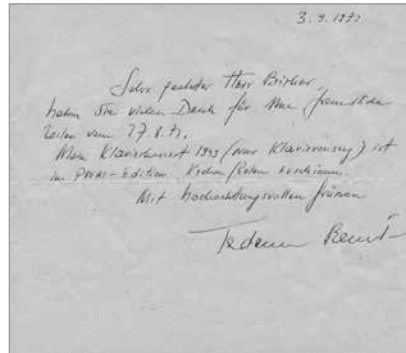 3.9.1971
Sehr geehrter Herr Bircher,
haben Sie vielen Dank für Ihre freundlichen
Zeilen vom 27.8.71.
Mein Klavierkonzert 1943 (nur Klavierauszug) ist
im PWM-Edition, Krakau erschienen.
Mit hochachtungsvollen Grüssen